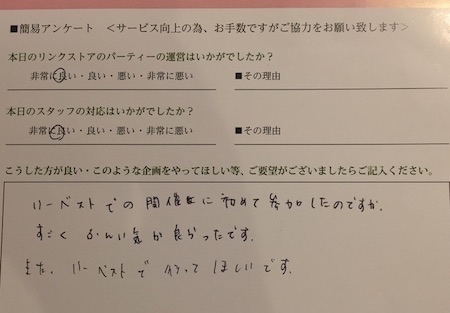 ■簡易アンケート ＜サービス向上の為、お手数ですがご協力をお願い致します＞
本日のリンクストアのパーティーの運営はいかがでしたか？
非常に良い・良い・悪い・非常に悪い ■その理由
本日のスタッフの対応はいかがでしたか？
非常に良い・良い・悪い・非常に悪い ■その理由
こうした方が良い・このような企画をやってほしい等、ご要望がございましたらご記入ください。
リーベストでの開催に初めて参加したのですが、
すごくふんい気が良かったです。
また、リーベストで行ってほしいです。